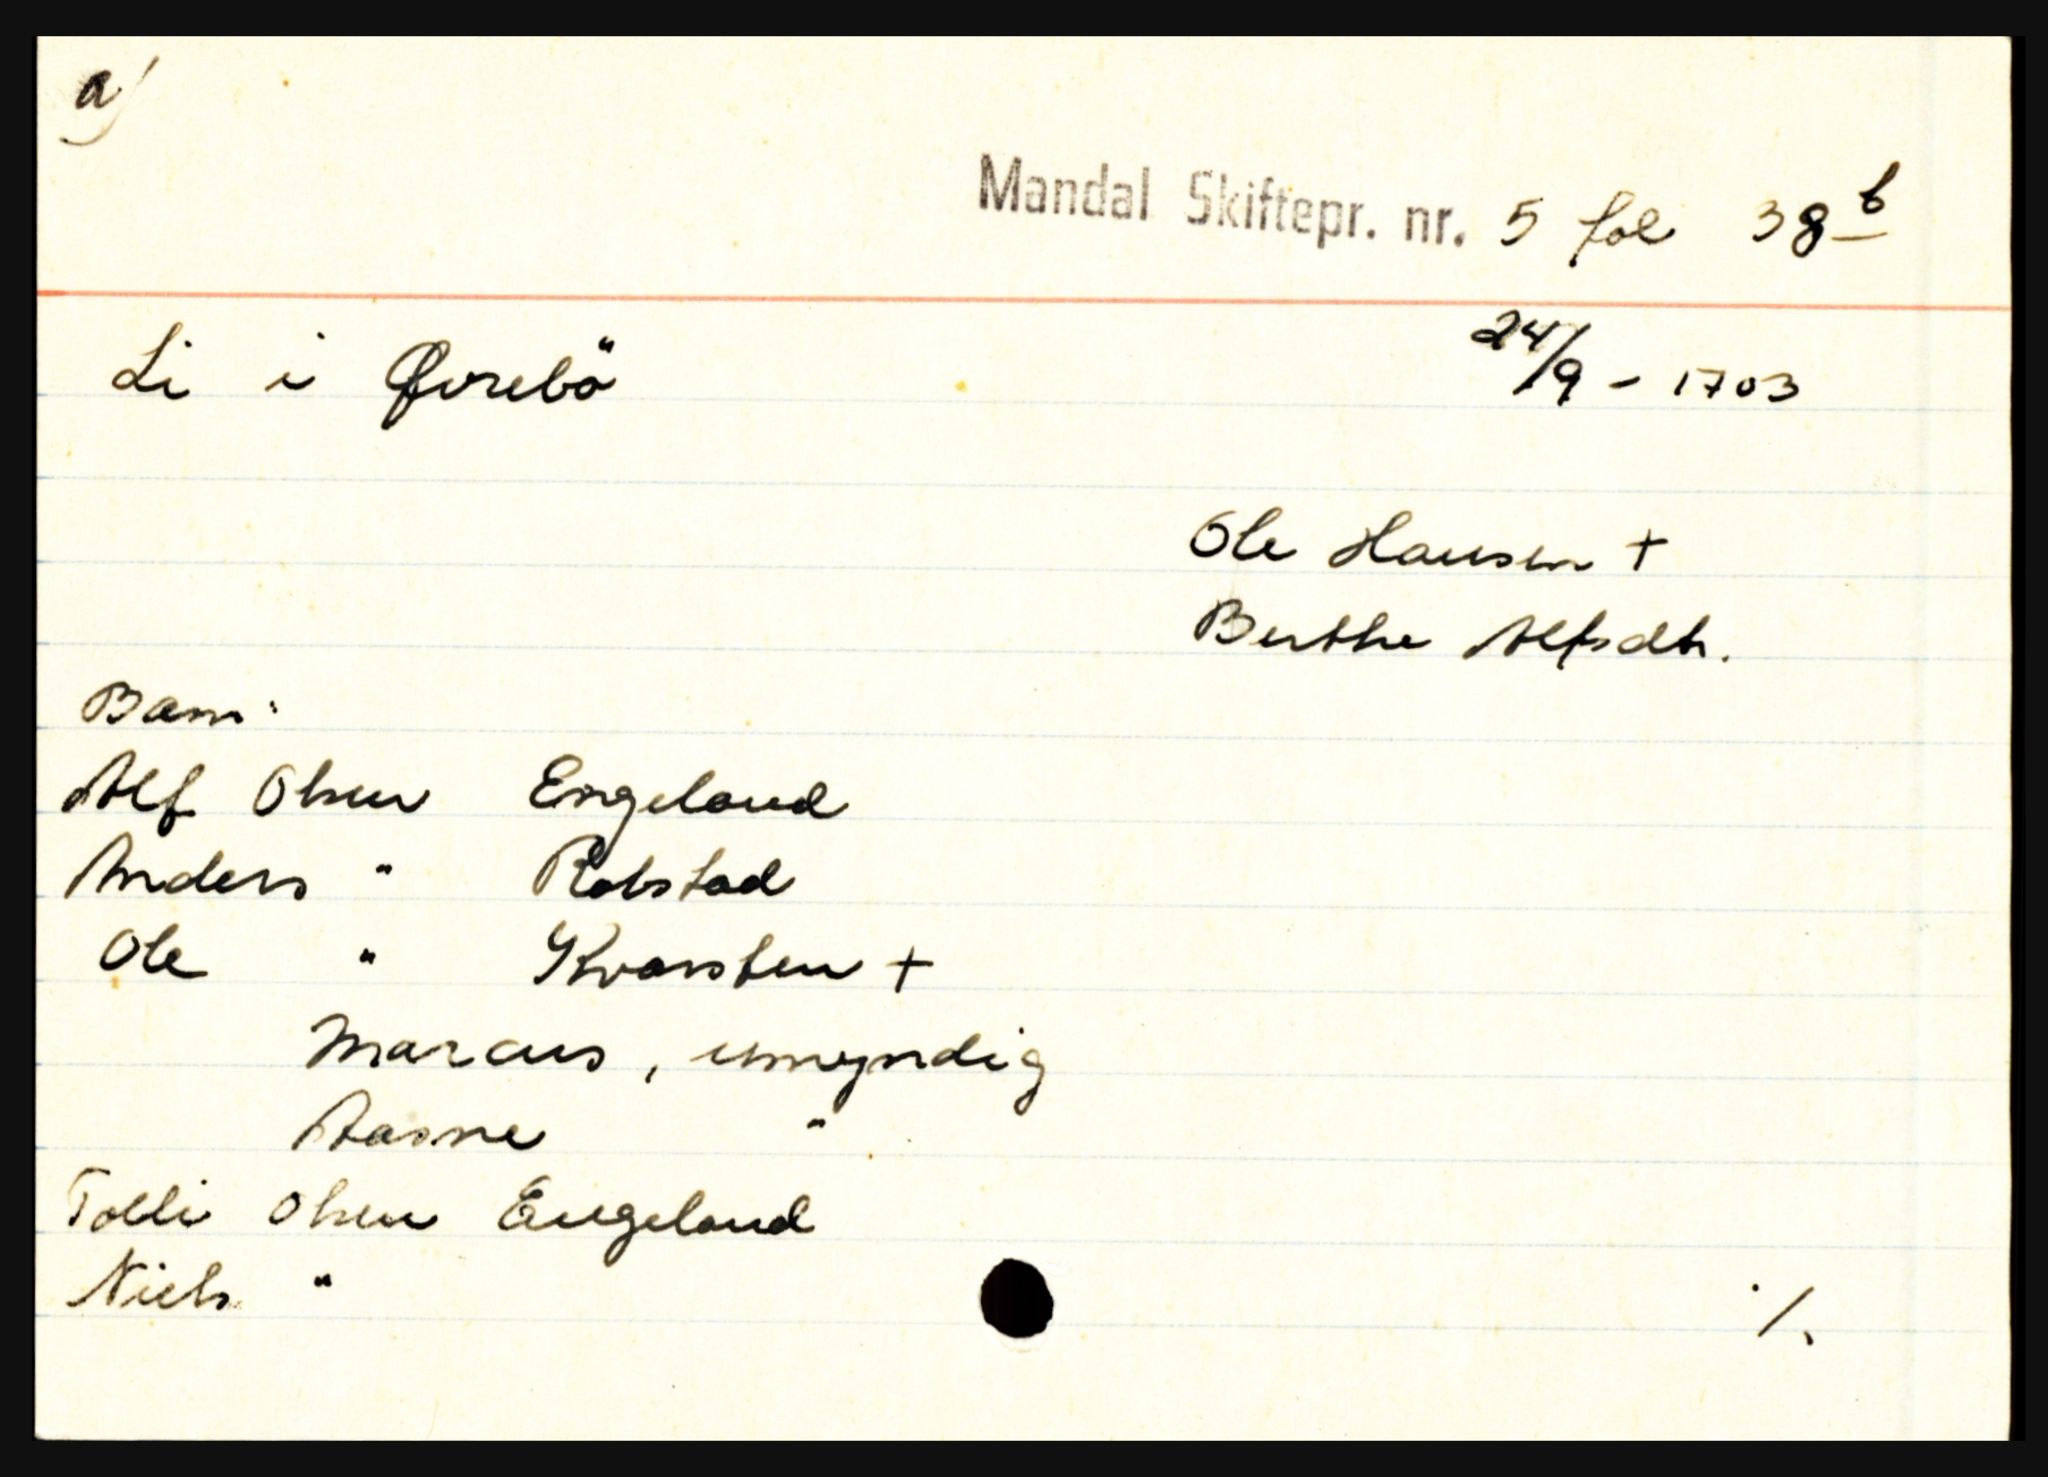 a)
Mandal Skiftepr. nr. 5 fol 38 b
Li i Øvrebö
24/9 - 1703
Ole Hansen +
Berthe Alfsdtr.
Barn:
Alf Olsen Engeland
Anders " Robstad
Ole " Kvarsten +
Marcus, umyndig
Aasne "
Tolli Olsen Engeland
Niels "
./.